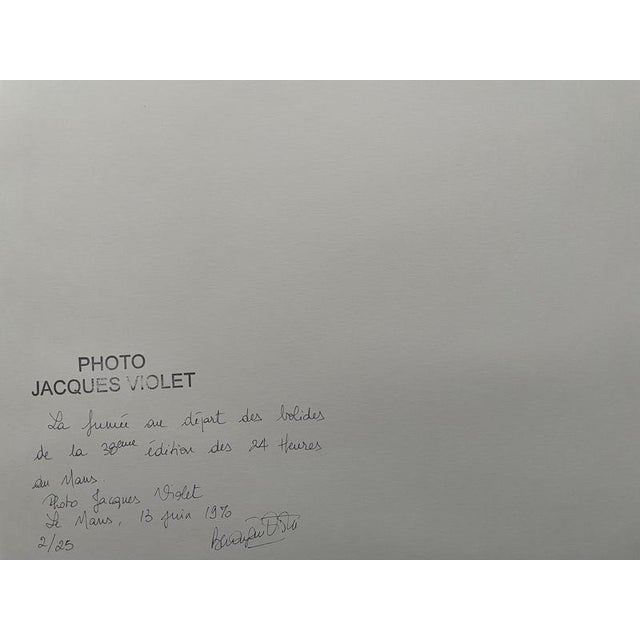 PHOTO
JACQUES VIOLET
La fumée au départ des bolides
de la 38ème édition des 24 Heures
au Mans.
Photo Jacques Violet
Le Mans, 13 juin 1970
2/25